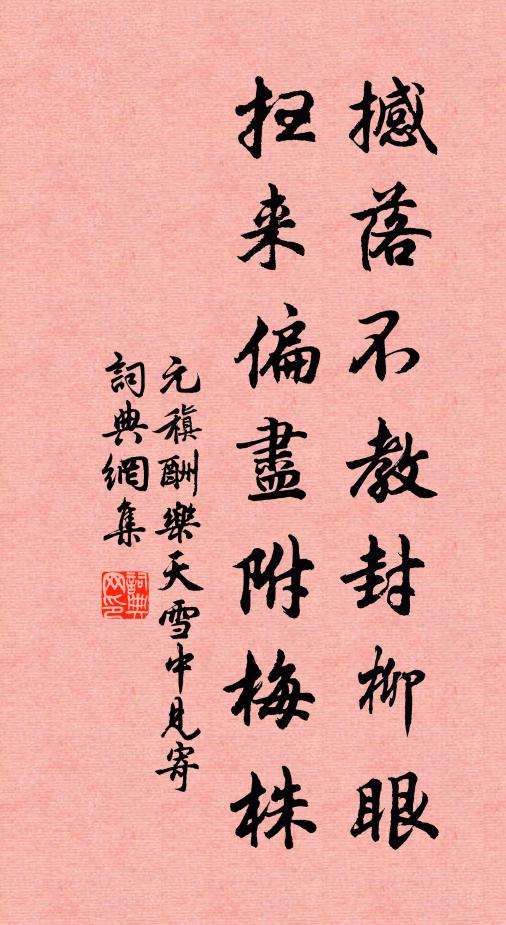 撼落不教封柳眼
扫来偏盡附梅株
元稹酬樂天雪中見寄
詞典網集
詞典网印